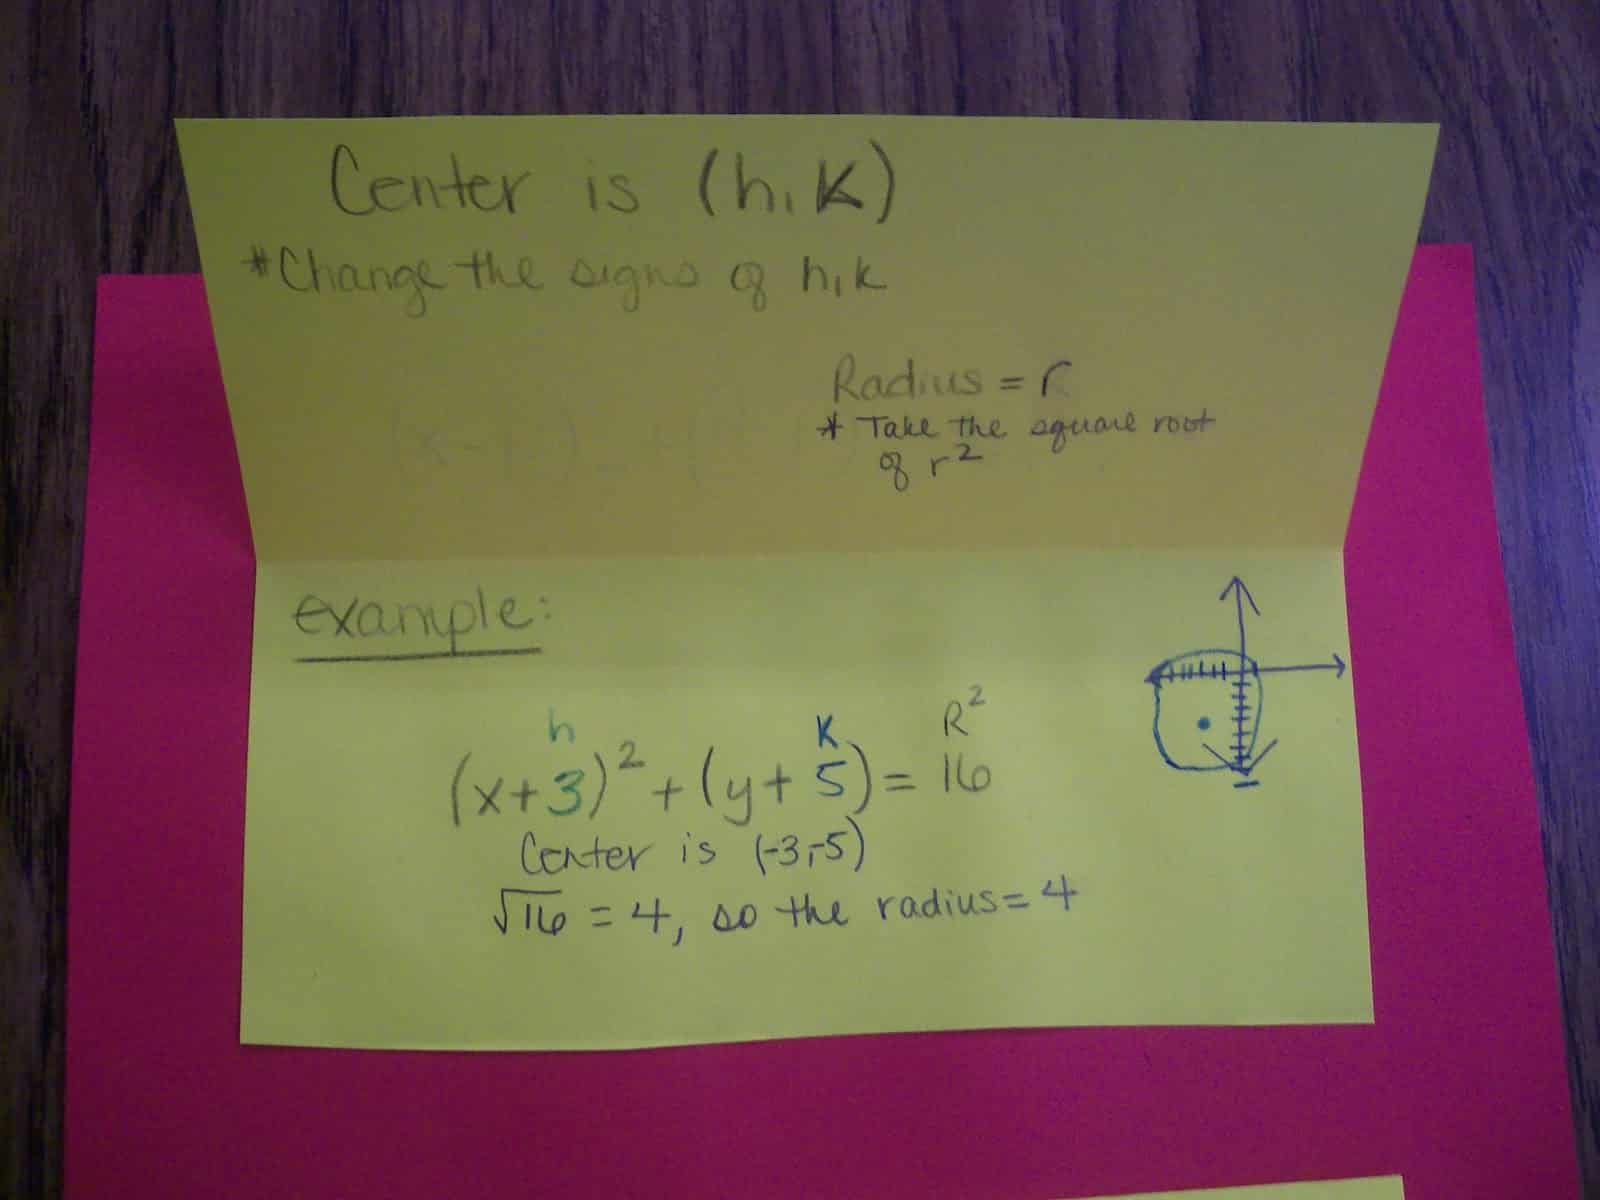 Center is (h,K)
*Change the signs of h,k
Radius = r
* Take the square root
of r²
example:
h K R²
(x+3)² + (y+5) = 16
Center is (-3,-5)
√16 = 4, so the radius = 4